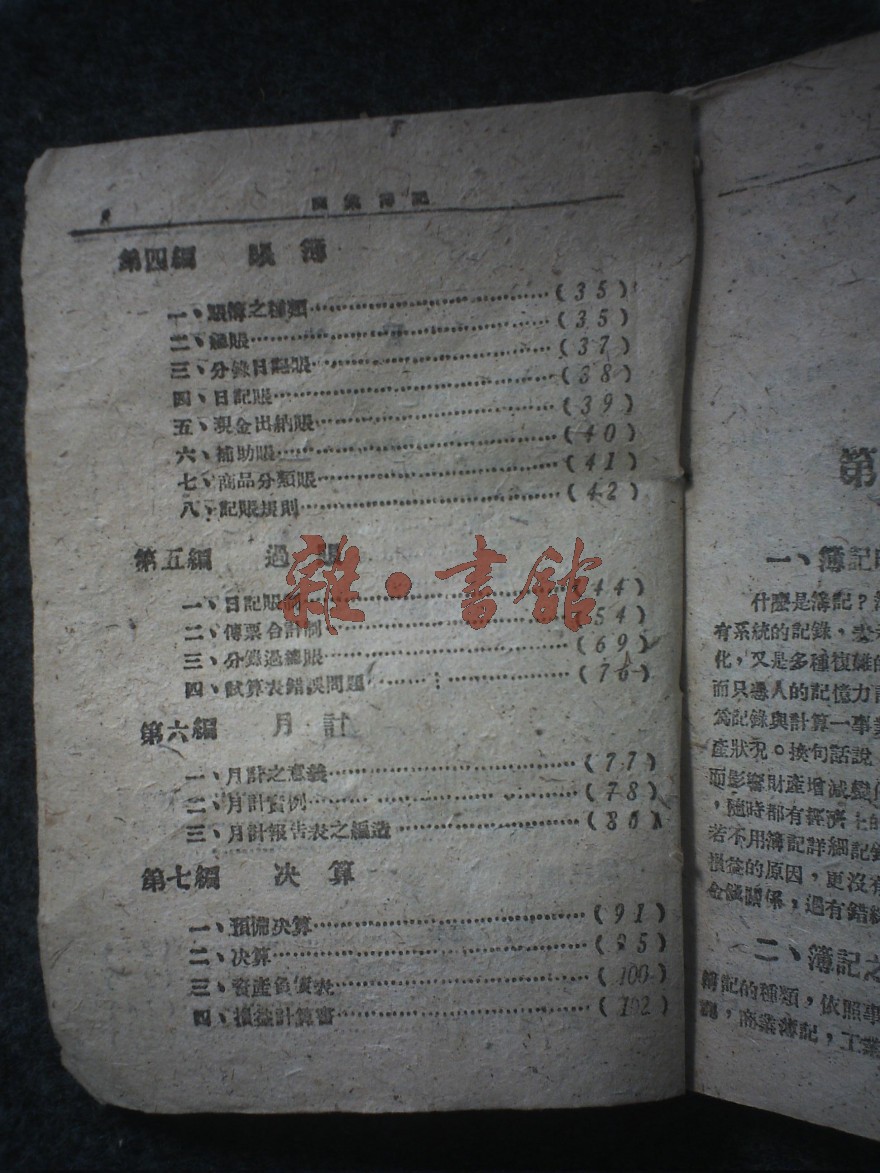 商業簿記
第四編 賬簿
一、賬簿之種類(35)
二、總賬(35)
三、分錄日記賬(37)
四、日記賬(38)
五、現金出納賬(39)
六、補助賬(40)
七、商品分類賬(41)
八、記賬規則(42)
第五編 過賬
一、日記賬制(44)
二、傳票合計制(54)
三、分錄過總賬(69)
四、試算表錯誤問題(76)
第六編 月計
一、月計之意義(77)
二、月計實例(78)
三、月計報告表之編造(80)
第七編 決算
一、預備決算(91)
二、決算(95)
三、資產負債表(100)
四、損益計算書(102)
雜·書館
第
一、簿記
什麼是簿記？
有系統的記錄，
化，又是多種複雜的
而只憑人的記憶力
為記錄與計算一事業
產狀況。換句話說，
而影響財產增減變
，隨時都有經濟上的
若不用簿記詳細記錄
損益的原因，更沒有
金錢關係，遇有錯
二、簿記之
簿記的種類，依照事
，商業簿記，工業